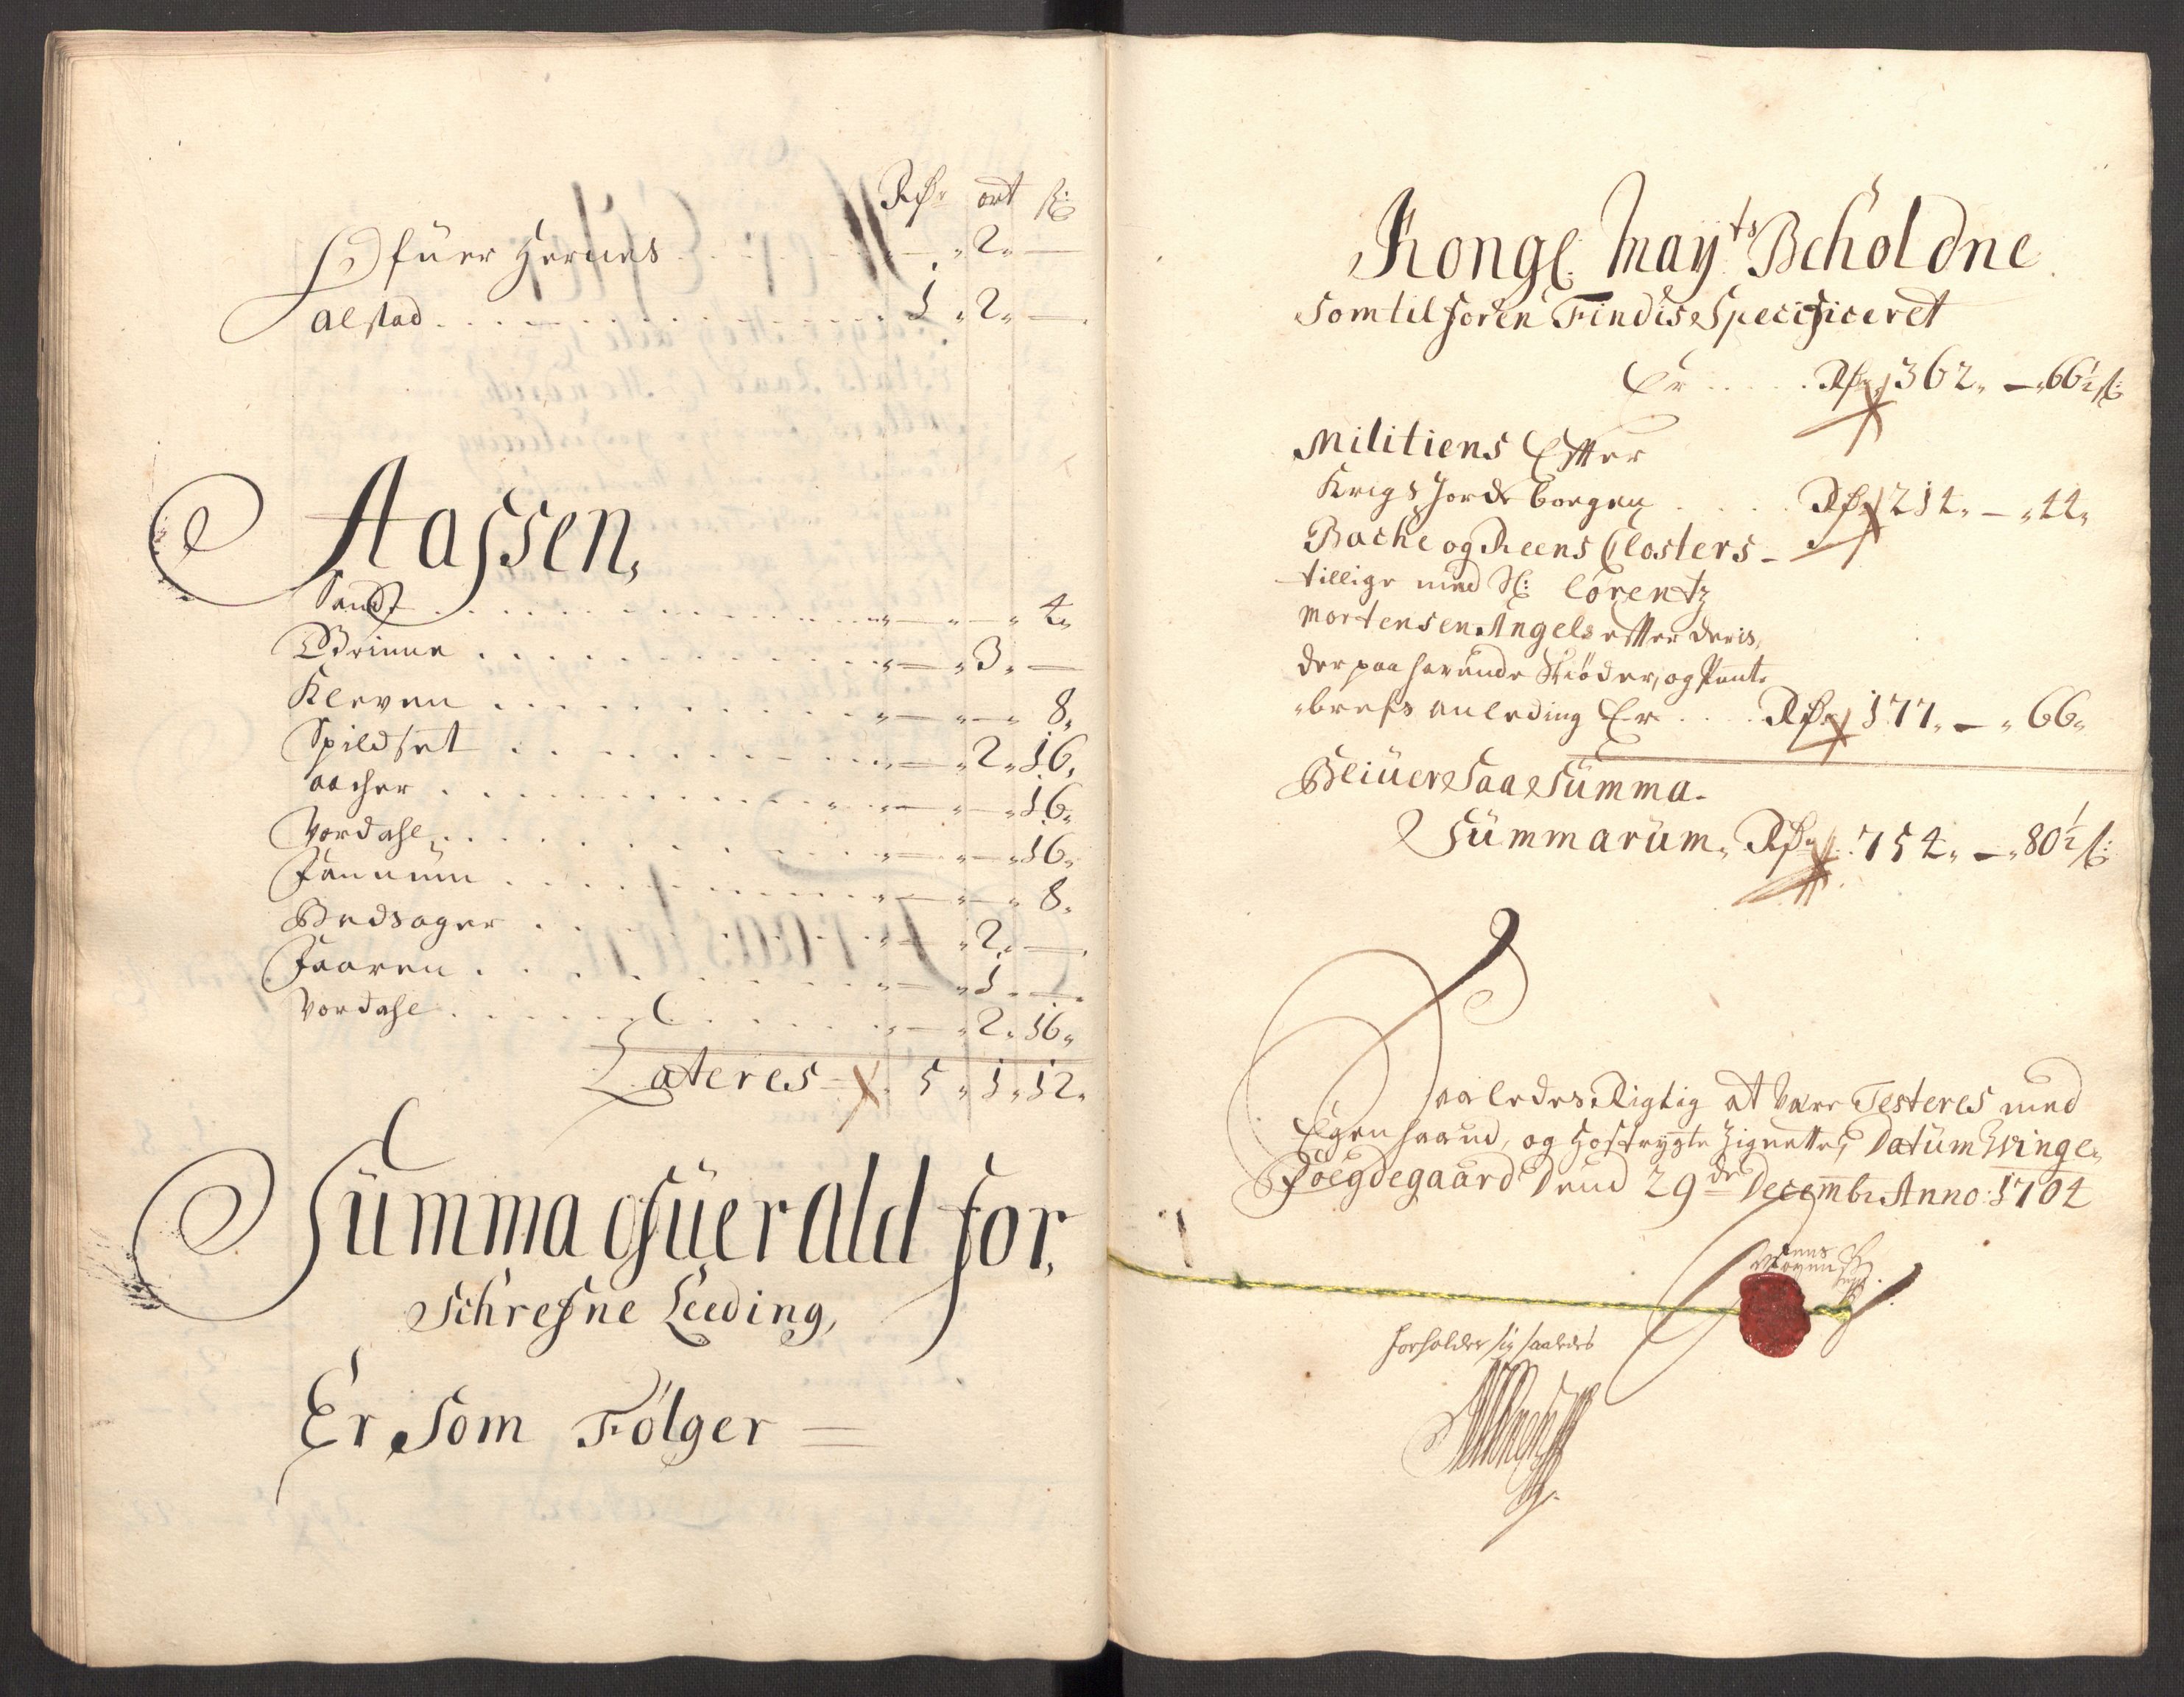 Rdr ort ß
Ofuer Hernes . . . — 2 —
Alstad . . . 1 2 —
Aassen,
Sandt . . . — — 4
Brinne . . . — 3 —
Kleven . . . — — 8
Spildset . . . — 2 16
Aacher . . . — — 16
Vordahl . . . — — 16
Fännum . . . — — 8
Bedsager . . . — 2 —
Faaren . . . — 1 —
Vordahl . . . — 2 16
Lateres 5 1 12
Summa ofuer Ald for,
Schrefne Leeding,
Er Som Følger =
Kongl: Mayts Beholdne
Som til foren Findis Specificeret
Er . . . Rdr 362 — 66½ ß
Militiens Efter
Krigs Jorde bogen . . . Rdr 214 — 44
Bache og Reens Closters -
tillige med Sl: Lorentz
Mortensen Angels efter deris,
der paa hafuende Skiøder, og Pant-
brefs anleding Er . . . Rdr 177 — 66
Bliuer Saa Summa-
Summarum, Rdr 754 — 80½ ß
Saaledes Rigtig at være Testeres med
Egen haand, og hostrygte Zignette, Datum Winge
Foegdegaard Dend 29de Decembr: Anno: 1704
Jens
forholder sig saaledes